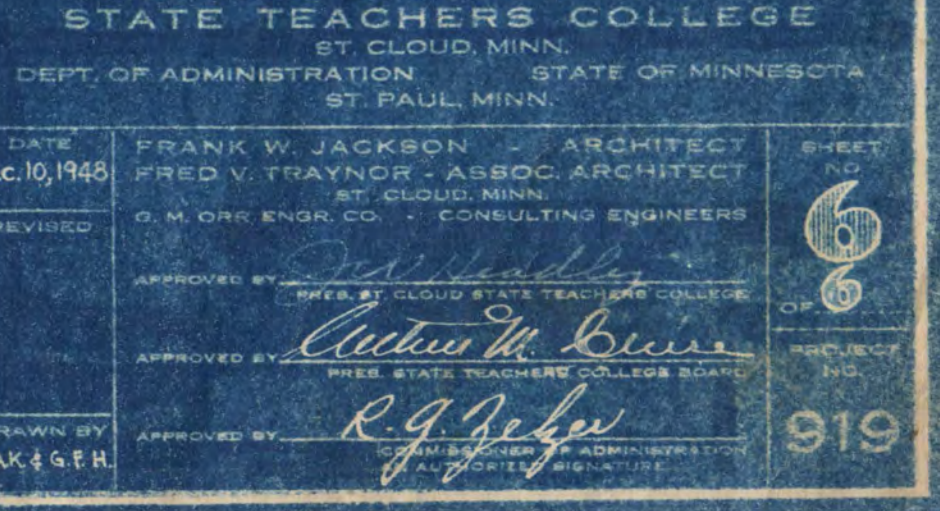 STATE TEACHERS COLLEGE
ST. CLOUD, MINN.
DEPT. OF ADMINISTRATION STATE OF MINNESOTA
ST. PAUL, MINN.
DATE
c. 10, 1948
REVISED
RAWN BY
AK & G.F.H.
FRANK W. JACKSON - ARCHITECT
FRED V. TRAYNOR - ASSOC. ARCHITECT
ST. CLOUD, MINN.
G. M. ORR ENGR. CO. - CONSULTING ENGINEERS
APPROVED BY J W Headley
PRES. ST. CLOUD STATE TEACHERS COLLEGE
APPROVED BY Arthur M.
PRES. STATE TEACHERS COLLEGE BOARD
APPROVED BY R. G. Zelzer
COMMISSIONER OF ADMINISTRATION
AUTHORIZED SIGNATURE
SHEET
NO
6
OF 6
PROJECT
NO.
919